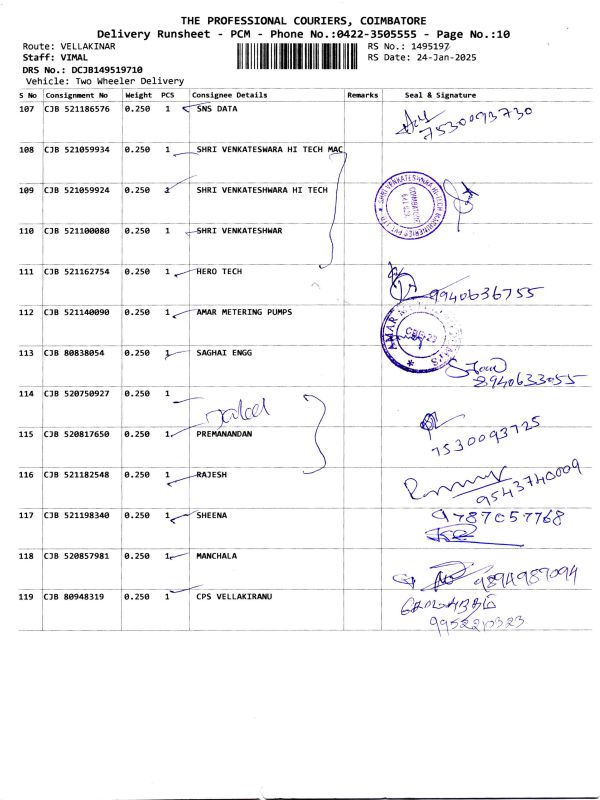 THE PROFESSIONAL COURIERS, COIMBATORE
Delivery Runsheet - PCM - Phone No.:0422-3505555 - Page No.:10
Route: VELLAKINAR RS No.: 1495197
Staff: VIMAL RS Date: 24-Jan-2025
DRS No.: DCJB149519710
Vehicle: Two Wheeler Delivery
S No Consignment No Weight PCS Consignee Details Remarks Seal & Signature
107 CJB 521186576 0.250 1 SNS DATA
7530093730
108 CJB 521059934 0.250 1 SHRI VENKATESWARA HI TECH MAC
109 CJB 521059924 0.250 1 SHRI VENKATESHWARA HI TECH
110 CJB 521100080 0.250 1 SHRI VENKATESHWAR
111 CJB 521162754 0.250 1 HERO TECH
9940636755
112 CJB 521140090 0.250 1 AMAR METERING PUMPS
113 CJB 80838054 0.250 1 SAGHAI ENGG
8940633055
114 CJB 520750927 0.250 1
115 CJB 520817650 0.250 1 PREMANANDAN
7530093725
116 CJB 521182548 0.250 1 RAJESH
9543740009
117 CJB 521198340 0.250 1 SHEENA 9787057768
118 CJB 520857981 0.250 1 MANCHALA
9894987094
119 CJB 80948319 0.250 1 CPS VELLAKIRANU